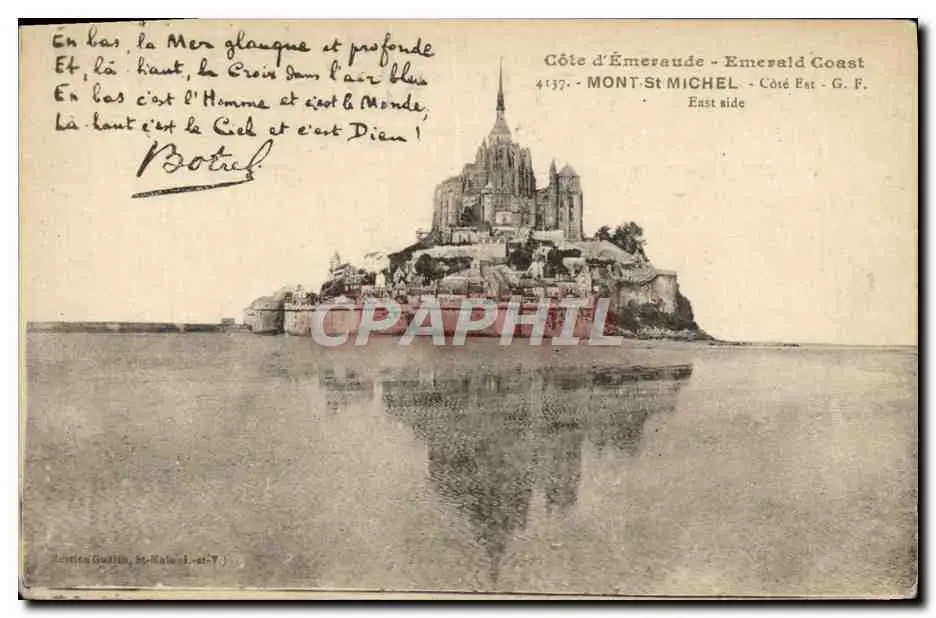 En bas, la Mer glauque et profonde
Et, là-haut, la Croix dans l'air bleu
En bas c'est l'Homme et c'est le Monde,
Là-haut c'est le Ciel et c'est Dieu !
Botrel
Côte d'Émeraude - Emerald Coast
4137. - MONT-St MICHEL - Côté Est - G. F.
East side
CPARAMA
Guérin, St-Malo (I.-et-V.)